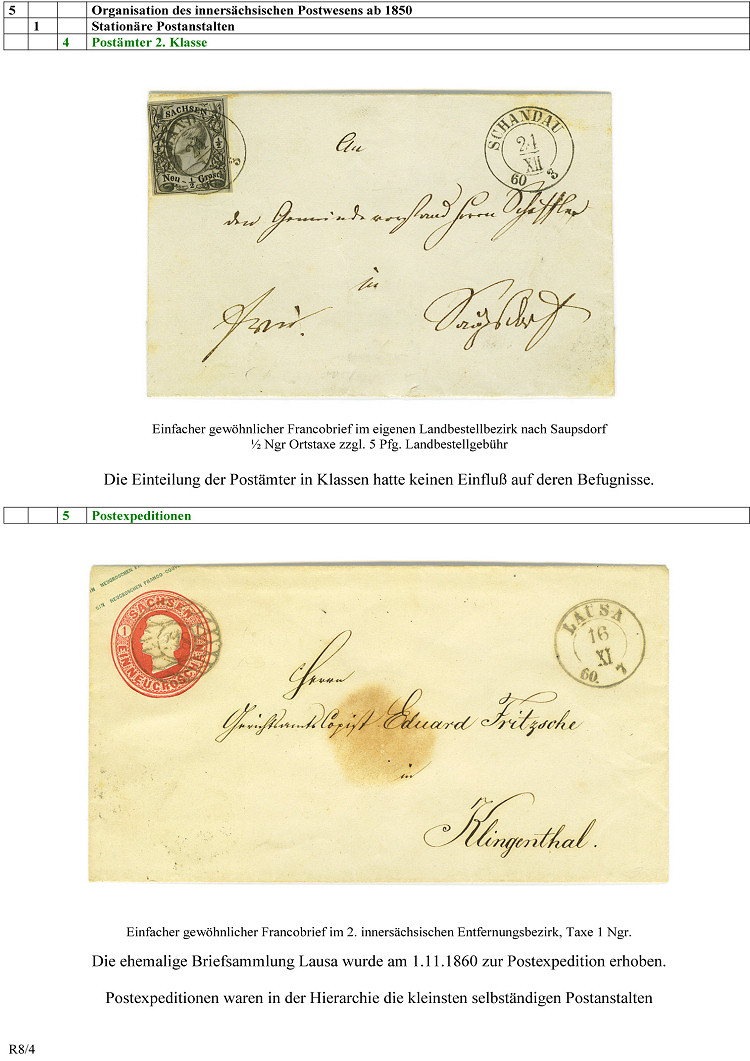 5 Organisation des innersächsischen Postwesens ab 1850
1 Stationäre Postanstalten
4 Postämter 2. Klasse
SACHSEN
½
Neu - ½ - Grosch
SCHANDAU
21
XII
60 3
An
den Gemeindevorstand Herrn Schäffler
in
Saupsdorf
Einfacher gewöhnlicher Francobrief im eigenen Landbestellbezirk nach Saupsdorf
½ Ngr Ortstaxe zzgl. 5 Pfg. Landbestellgebühr
Die Einteilung der Postämter in Klassen hatte keinen Einfluß auf deren Befugnisse.
5 Postexpeditionen
EIN NEUGROSCHEN FRANCO-COUVERT
SACHSEN
1 1
EIN NEUGROSCHEN
LAUSA
16
XI
60. 7
Herrn
Gerichtsamts Copist Eduard Fritzsche
in
Klingenthal.
Einfacher gewöhnlicher Francobrief im 2. innersächsischen Entfernungsbezirk, Taxe 1 Ngr.
Die ehemalige Briefsammlung Lausa wurde am 1.11.1860 zur Postexpedition erhoben.
Postexpeditionen waren in der Hierarchie die kleinsten selbständigen Postanstalten
R8/4